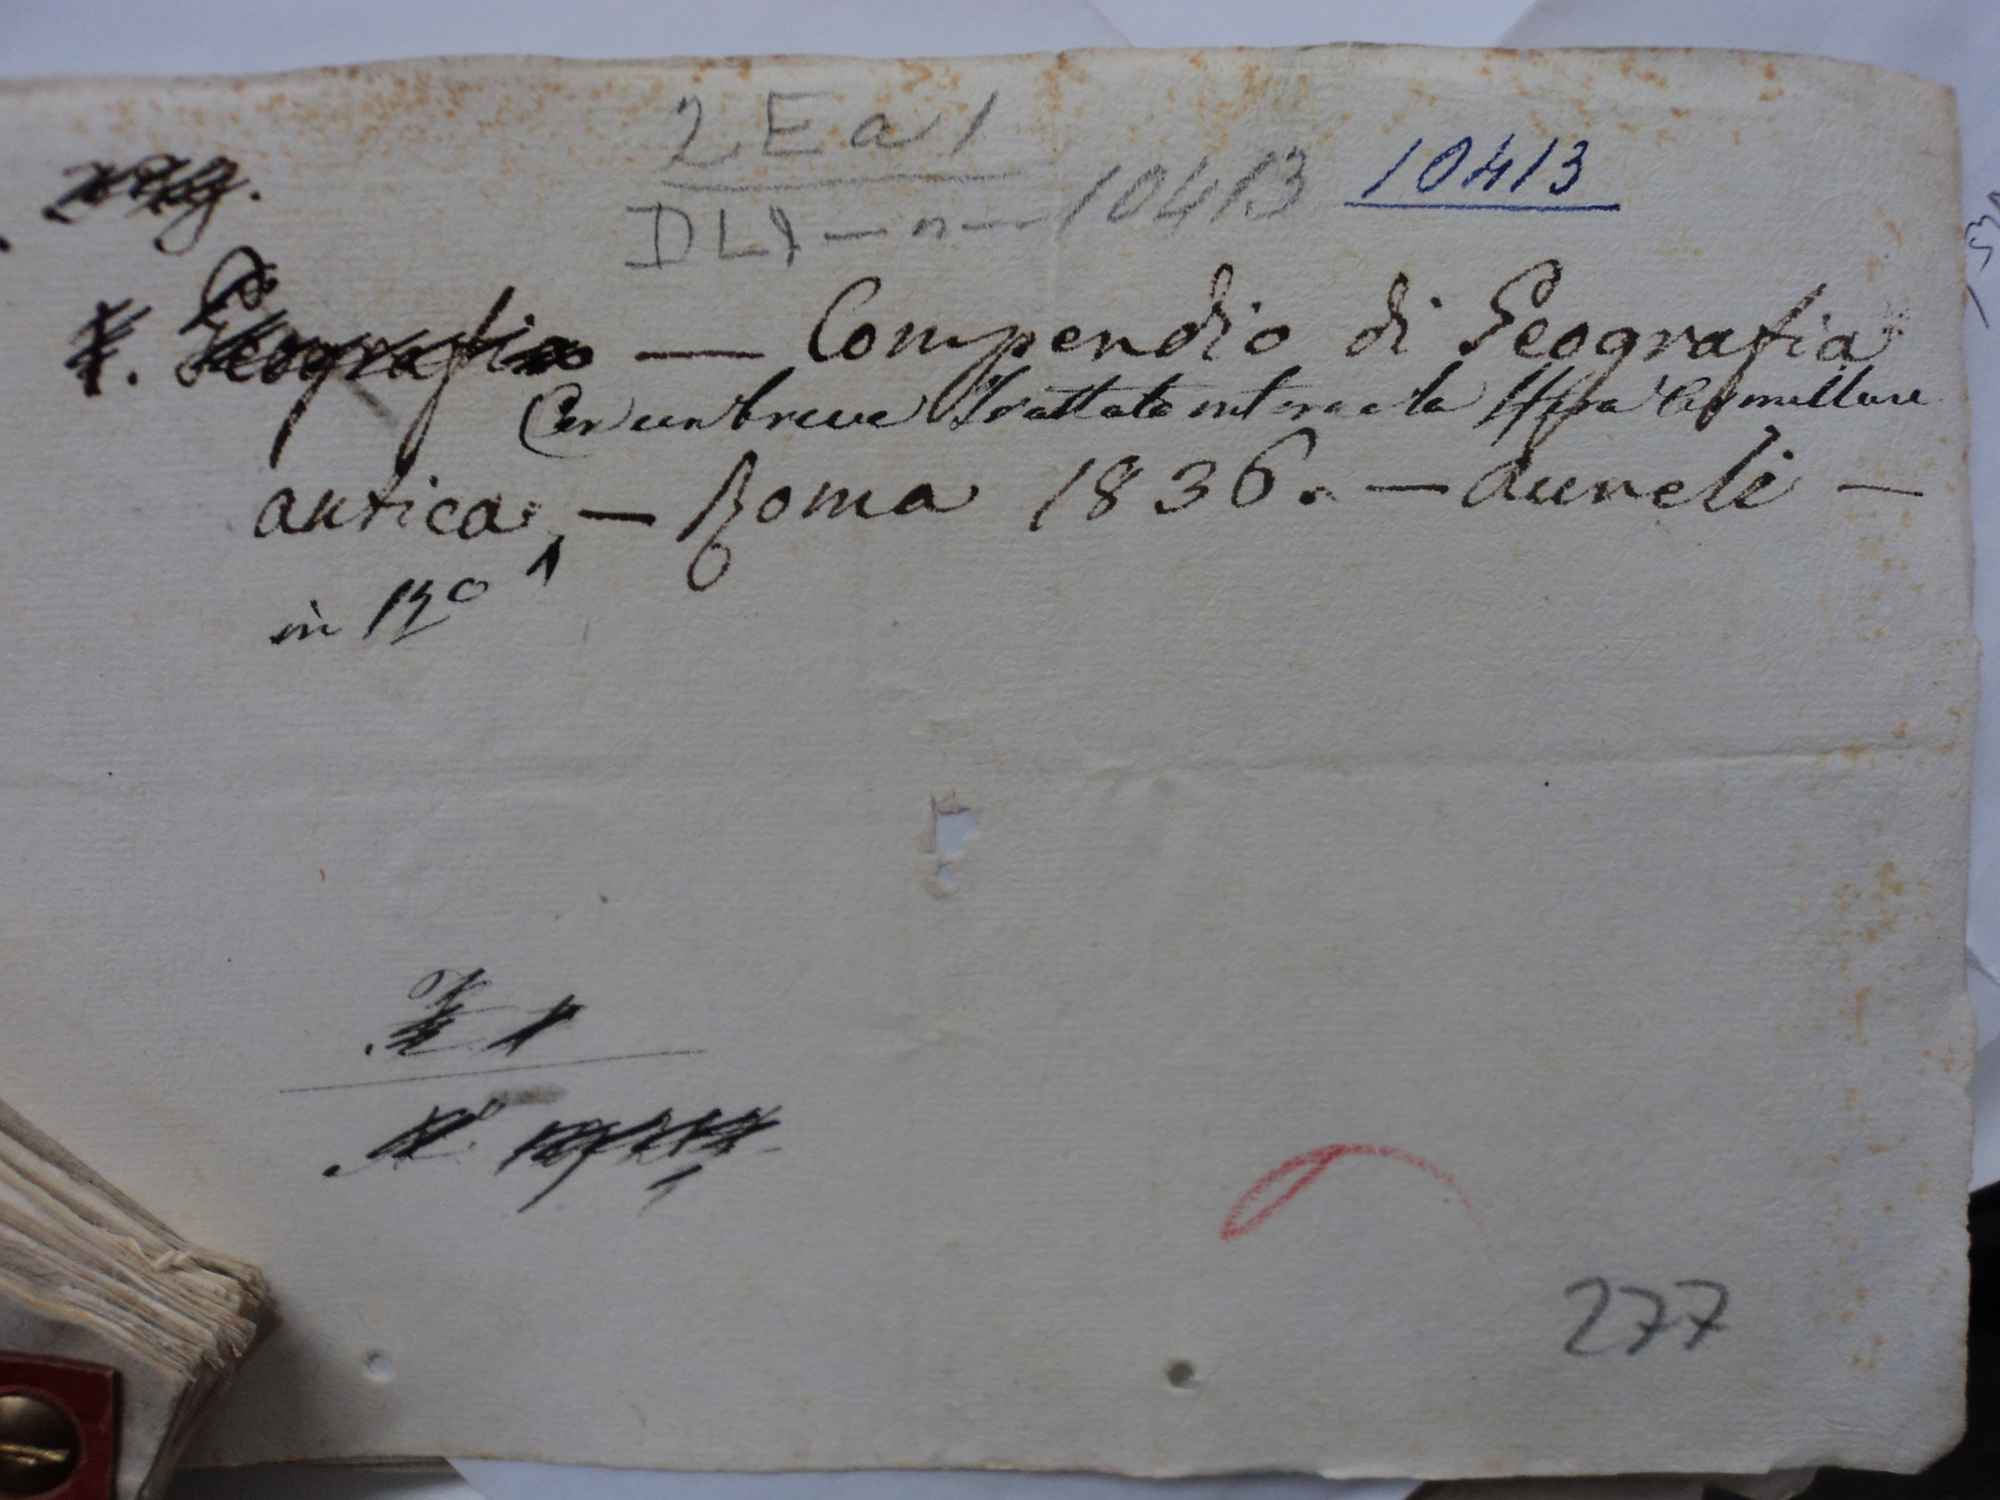 2 E a 1
10413
DLI — n — 10413
Geografia — Compendio di Geografia
Con un breve Trattato intorno la Sfera Armillare
antica — Roma 1836. — Aureli —
in 12º
277